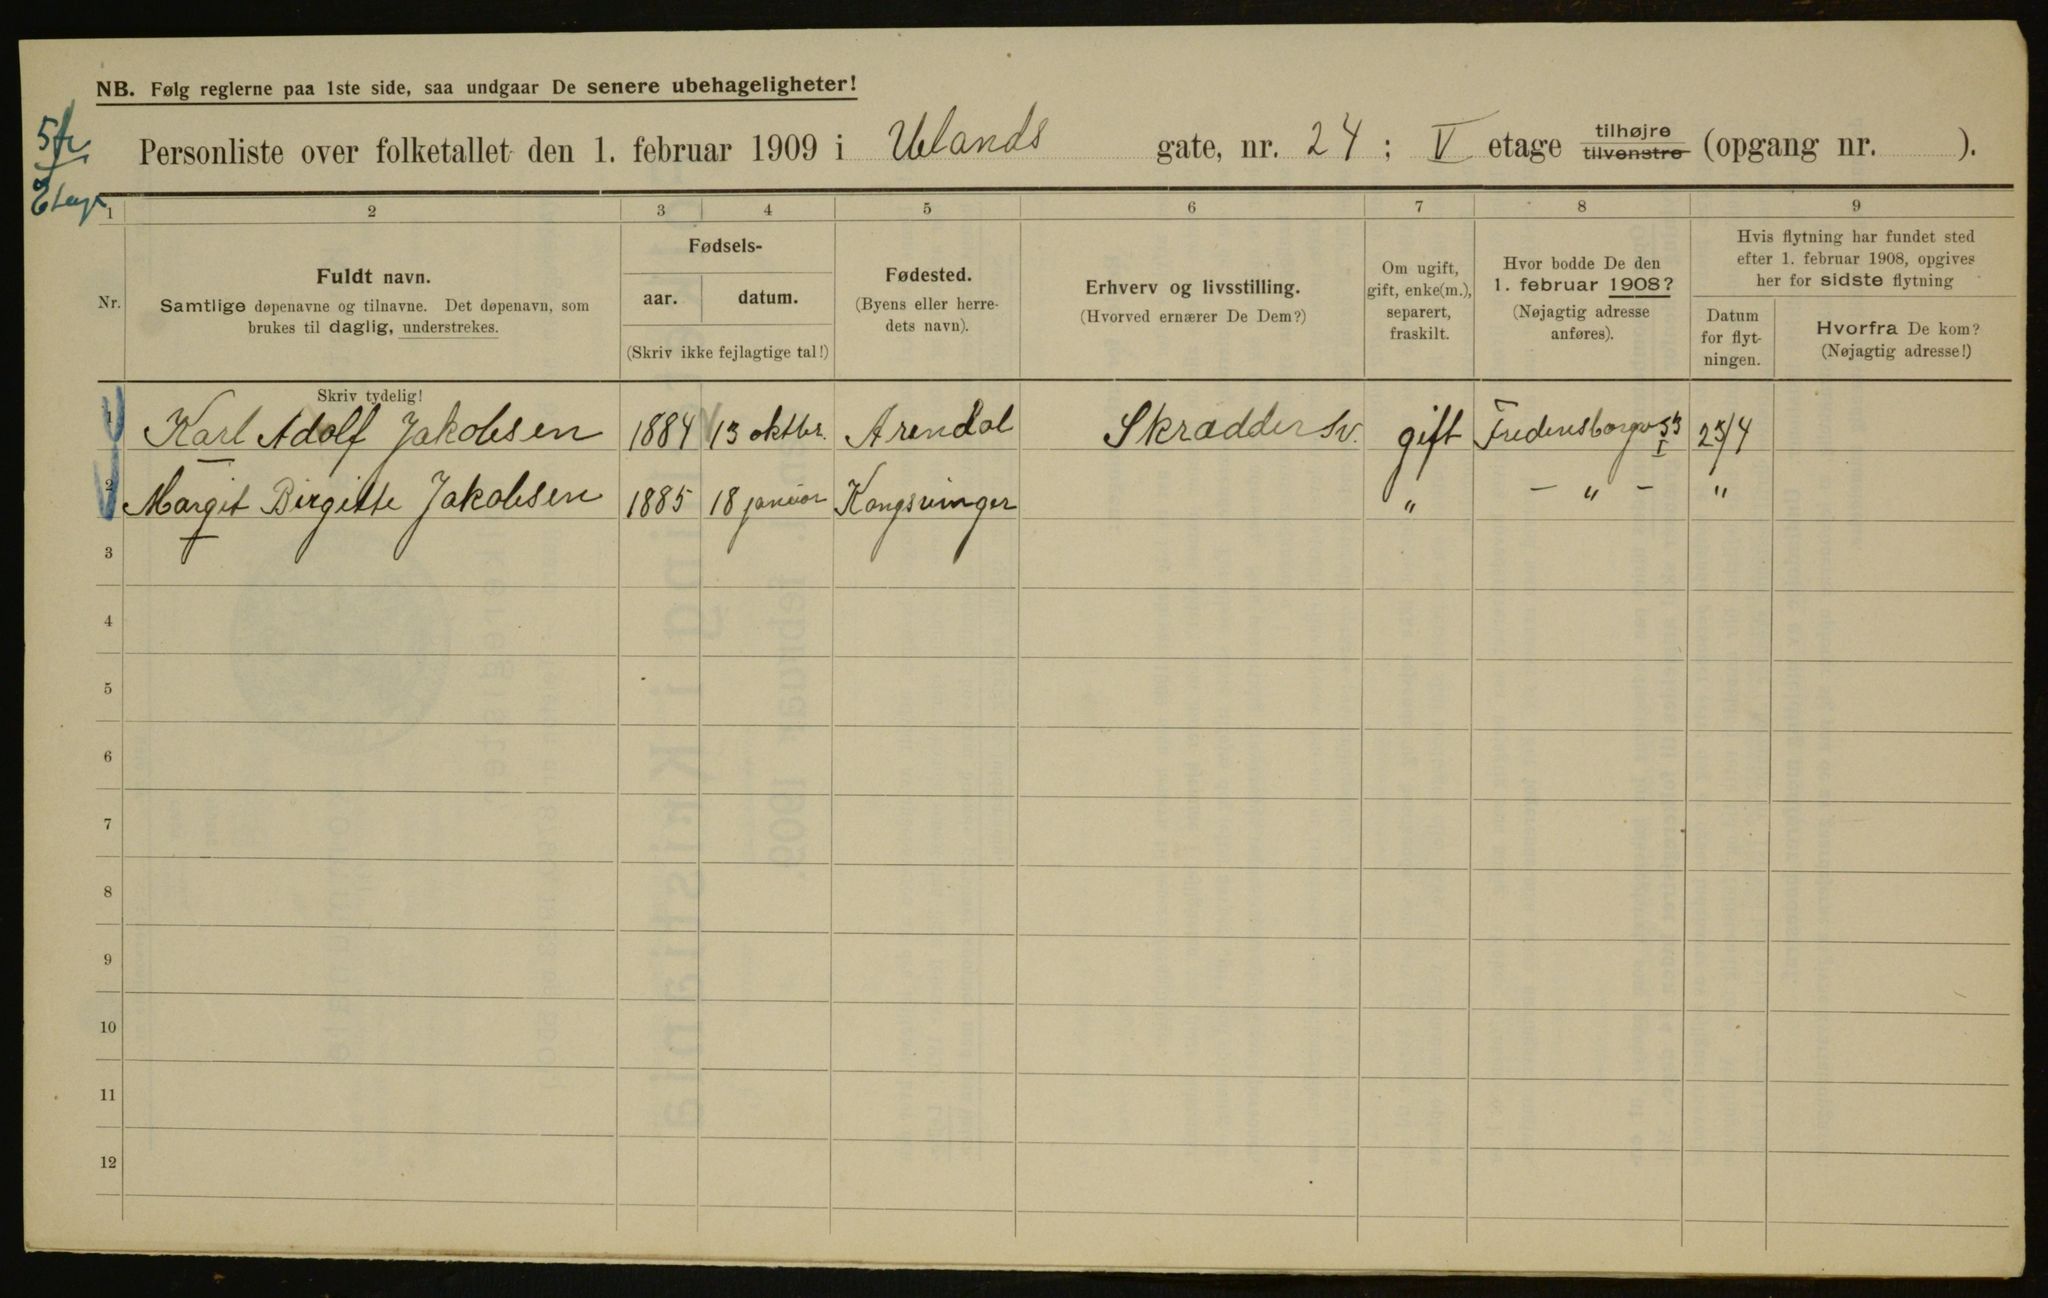 NB. Følg reglerne paa 1ste side, saa undgaar De senere ubehageligheter!
5te
Etage
Personliste over folketallet den 1. februar 1909 i Uelands gate, nr. 24 ; V etage tilhøjre tilvenstre (opgang nr. ).
1 2 3 4 5 6 7 8 9
Nr.
Fuldt navn.
Samtlige døpenavne og tilnavne. Det døpenavn, som
brukes til daglig, understrekes.
Skriv tydelig!
Fødsels-
aar. datum.
(Skriv ikke fejlagtige tal!)
Fødested.
(Byens eller herre-
dets navn).
Erhverv og livsstilling.
(Hvorved ernærer De Dem?)
Om ugift,
gift, enke(m.),
separert,
fraskilt.
Hvor bodde De den
1. februar 1908?
(Nøjagtig adresse
anføres).
Hvis flytning har fundet sted
efter 1. februar 1908, opgives
her for sidste flytning
Datum
for flyt-
ningen.
Hvorfra De kom?
(Nøjagtig adresse!)
1 Karl Adolf Jakobsen 1884 13 oktbr. Arendal Skrædder sv. gift Fredensborgv 53 I 25/4
2 Margit Birgitte Jakobsen 1885 18 januar Kongsvinger " – " – "
3
4
5
6
7
8
9
10
11
12